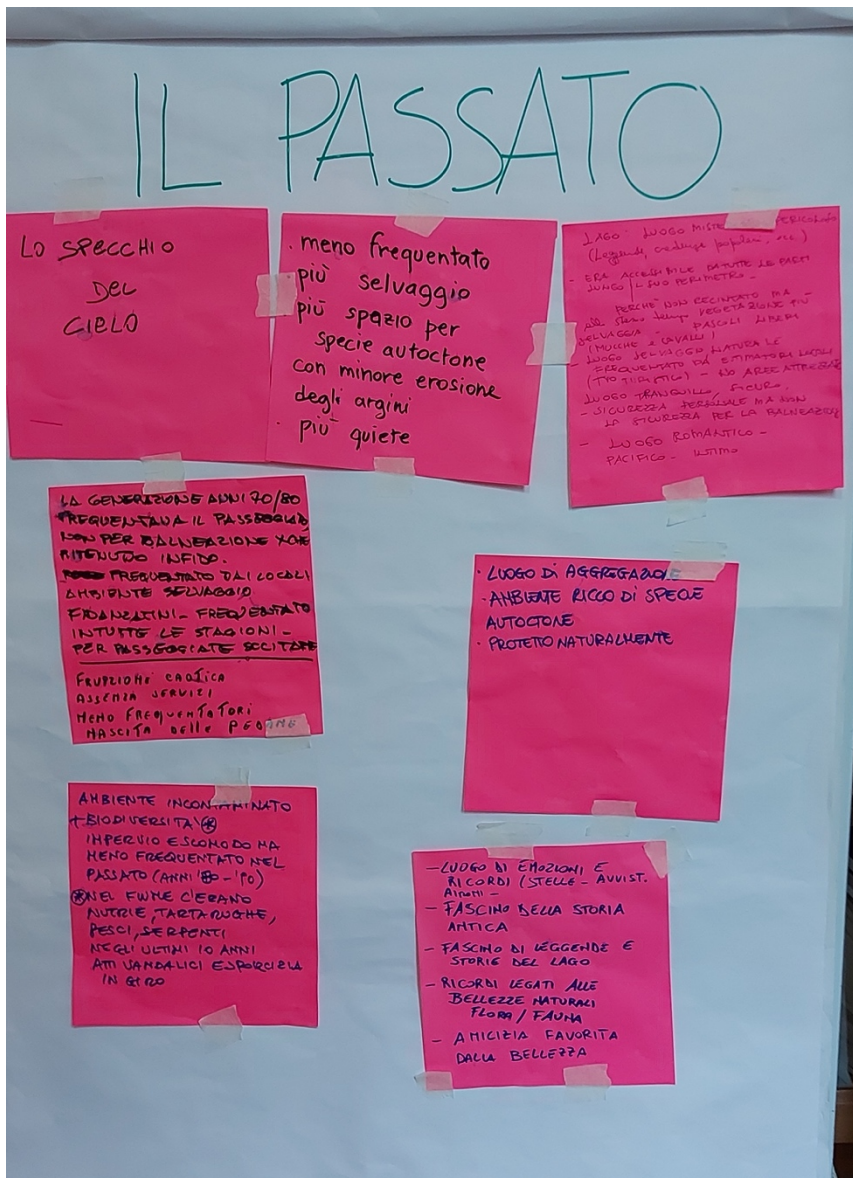 IL PASSATO
LO SPECCHIO
DEL
CIELO
. meno frequentato
più selvaggio
più spazio per
specie autoctone
con minore erosione
degli argini
. più quiete
LAGO: LUOGO
(Leggende, credenze popolari, ecc.)
- ERA ACCESSIBILE DA TUTTE LE PARTI
LUNGO IL SUO PERIMETRO -
PERCHÉ NON RECINTATO MA
allo stesso tempo VEGETAZIONE PIÙ
SELVAGGIA - PASCOLI LIBERI
(MUCCHE e CAVALLI)
- LUOGO SELVAGGIO NATURALE
FREQUENTATO DA ESTIMATORI LOCALI
(TIPO TURISTICO) - NO AREE ATTREZZATE
LUOGO TRANQUILLO, SICURO,
- SICUREZZA PERSONALE MA NON
LA SICUREZZA PER LA BALNEAZIONE
- LUOGO ROMANTICO -
PACIFICO - INTIMO
LA GENERAZIONE ANNI 70/80
FREQUENTAVA IL PASSEGGIO,
NON PER BALNEAZIONE XCHE
RITENUTO INFIDO.
FREQUENTATO DAI LOCALI
AMBIENTE SELVAGGIO
FIDANZATINI - FREQUENTATO
IN TUTTE LE STAGIONI -
PER PASSEGGIATE SOLITARIE
FRUIZIONE CAOTICA
ASSENZA SERVIZI
MENO FREQUENTATORI
NASCITA DELLE PEDANE
· LUOGO DI AGGREGAZIONE
· AMBIENTE RICCO DI SPECIE
AUTOCTONE
· PROTETTO NATURALMENTE
AMBIENTE INCONTAMINATO
+ BIODIVERSITÀ ⊛
IMPERVIO E SCOMODO MA
MENO FREQUENTATO NEL
PASSATO (ANNI '80 - '90)
⊛ NEL FIUME C'ERANO
NUTRIE, TARTARUGHE,
PESCI, SERPENTI
NEGLI ULTIMI 10 ANNI
ATTI VANDALICI E SPORCIZIA
IN GIRO
- LUOGO DI EMOZIONI E
RICORDI (STELLE - AVVIST.
Aironi -
- FASCINO DELLA STORIA
ANTICA
- FASCINO DI LEGGENDE E
STORIE DEL LAGO
- RICORDI LEGATI ALLE
BELLEZZE NATURALI
FLORA / FAUNA
- AMICIZIA FAVORITA
DALLA BELLEZZA